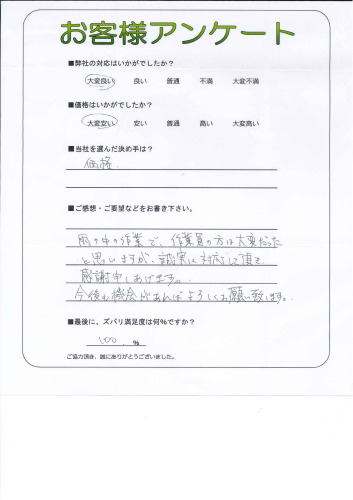 お客様アンケート
■弊社の対応はいかがでしたか？
大変良い 良い 普通 不満 大変不満
■価格はいかがでしたか？
大変安い 安い 普通 高い 大変高い
■当社を選んだ決め手は？
価格.
■ご感想・ご要望などをお書き下さい。
雨の中の作業で、作業員の方は大変だった
と思いますが、誠実に対応して頂き
感謝申しあげます。
今後も機会があればよろしくお願い致します。
■最後に、ズバリ満足度は何％ですか？
100.％
ご協力頂き、誠にありがとうございました。